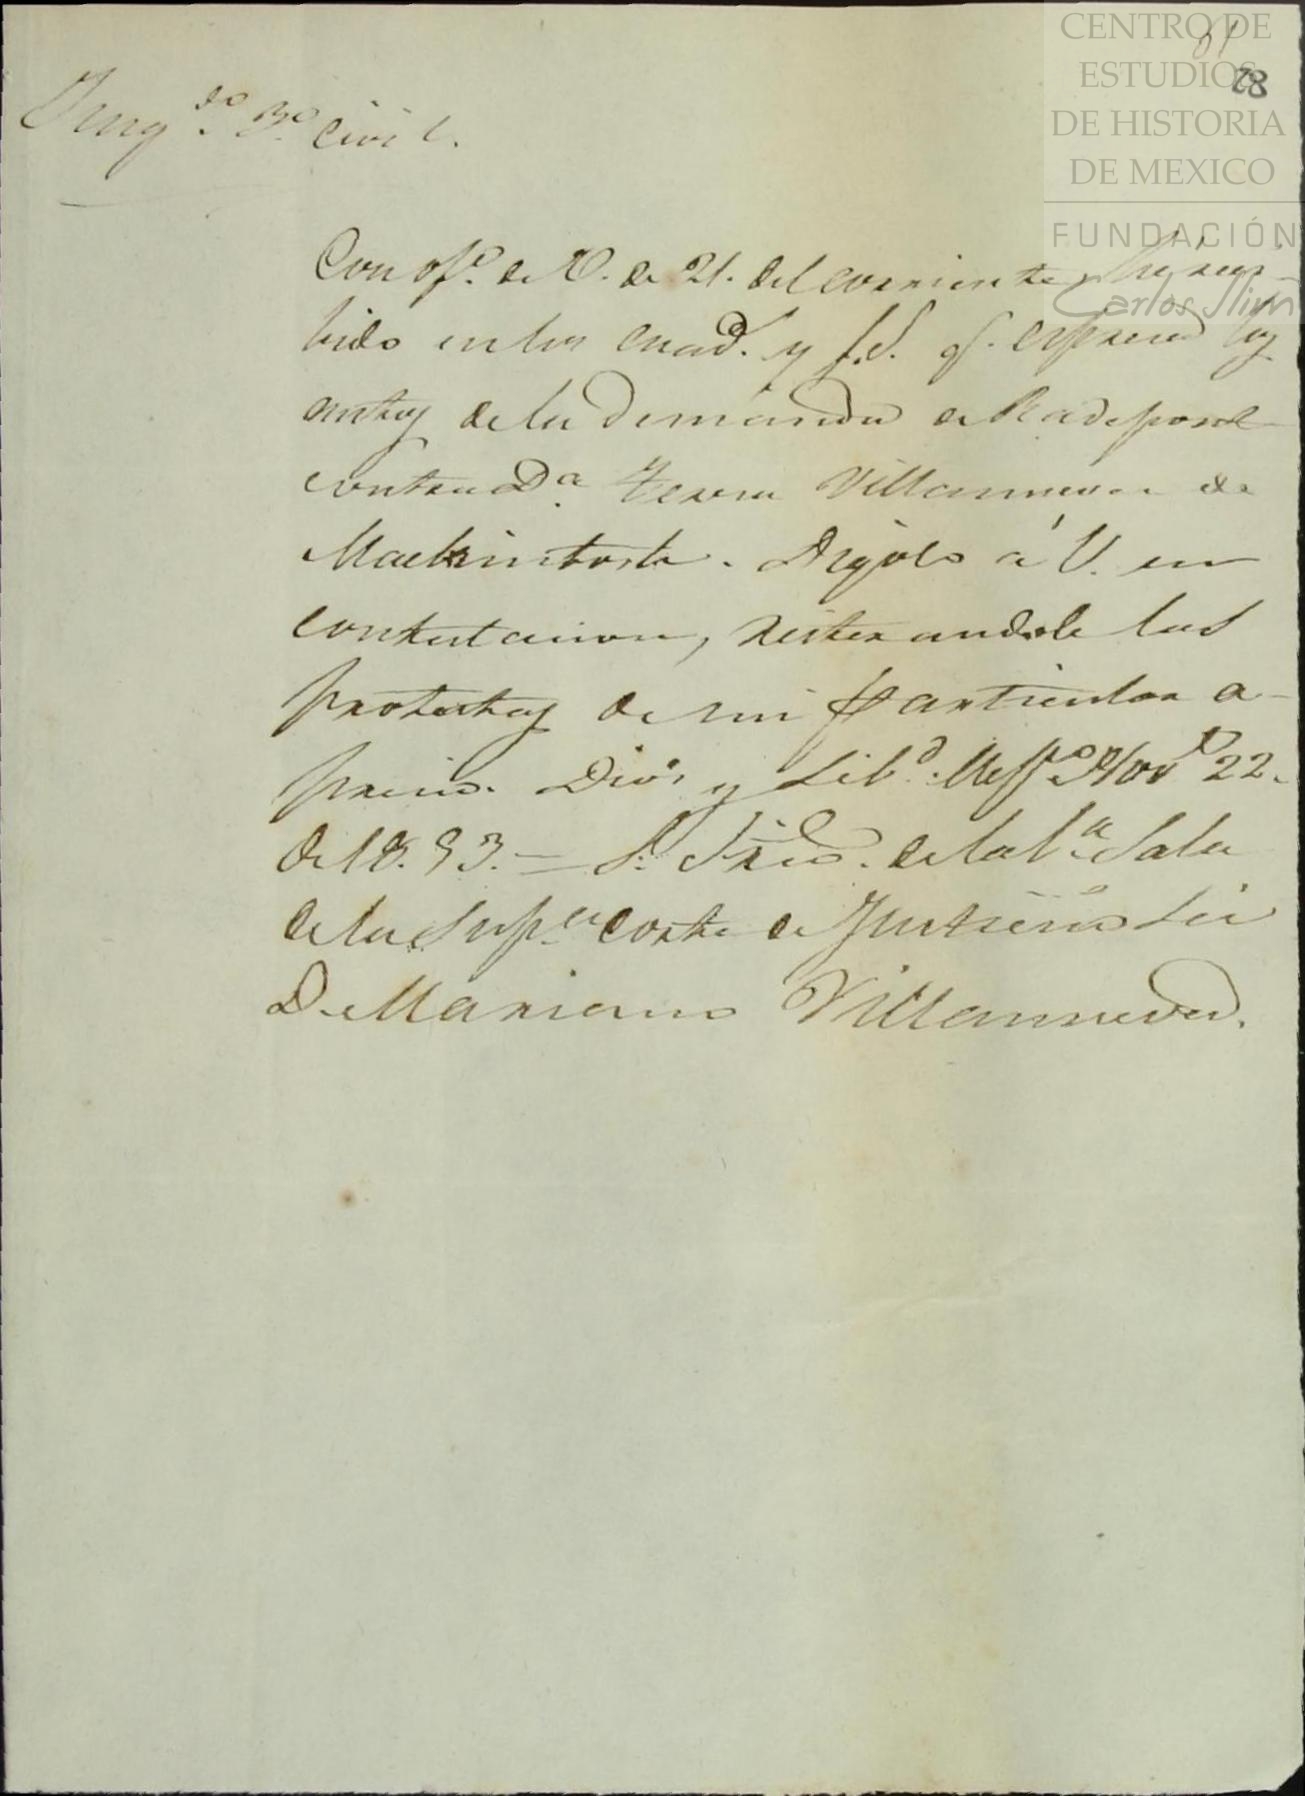 CENTRO DE
ESTUDIOS
DE HISTORIA
DE MEXICO
FUNDACIÓN
Carlos Slim
28
Juzg.do 3.o Civil.
Con of.o de V. de 21. del corriente, he reci-
bido en los cuad.s y f.s q. expresa los
autos de la demanda de Radepont
contra D.a Teresa Villanueva de
Mackintosh. Digolo á V. en
contestacion, reiterandole las
protestas de mi particular a-
precio. Dios y Lib.d Mej.o Nov.e 22.
de 1853. = S. Srio. de la 1.a Sala
de la Sup.a Corte de Justicia Lic
D. Mariano Villanueva.